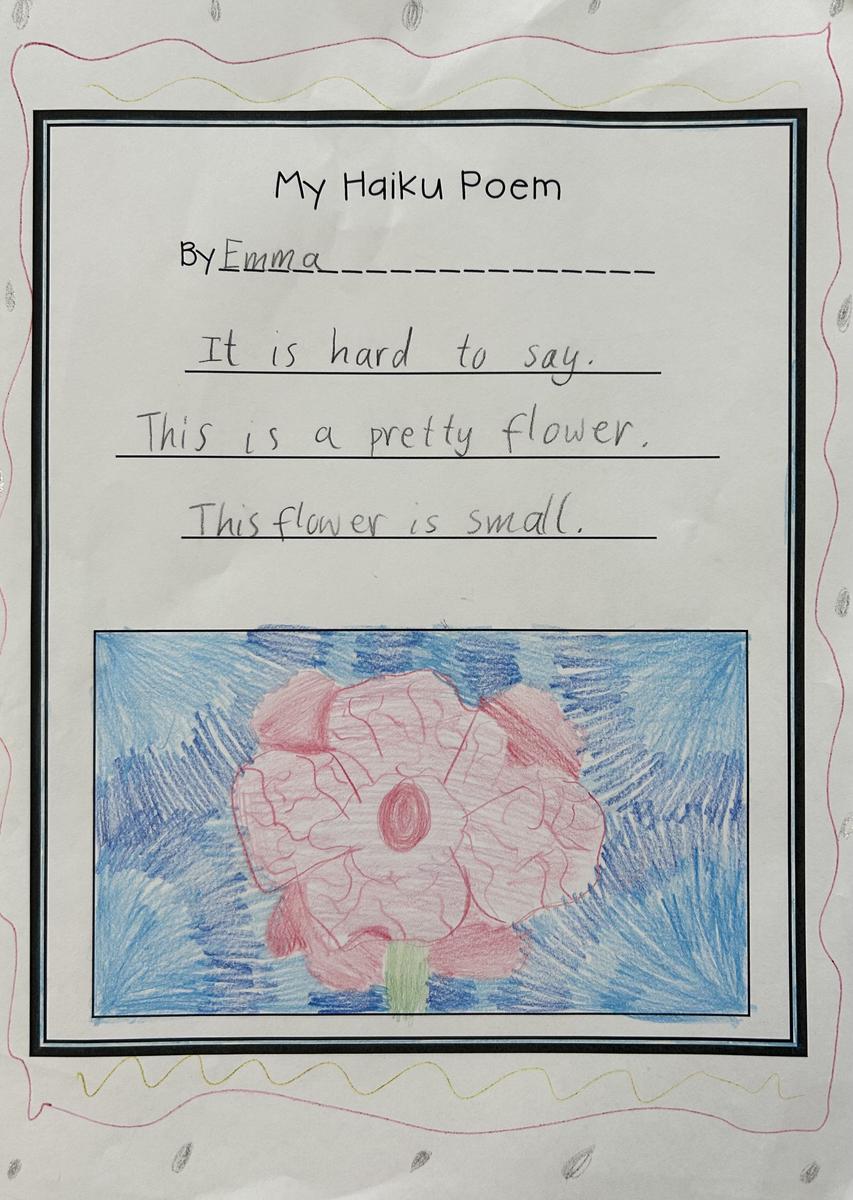 My Haiku Poem
By Emma
It is hard to say.
This is a pretty flower.
This flower is small.